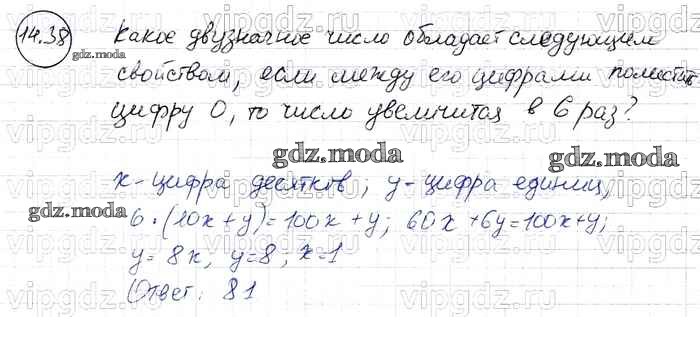 14.38 Какое двузначное число обладает следующим
gdz.moda
свойством, если между его цифрами поместить
цифру 0, то число увеличится в 6 раз?
gdz.moda gdz.moda
x-цифра десятков; y-цифра единиц,
gdz.moda
6·(10x+y)=100x+y; 60x+6y=100x+y;
y=8x; y=8; x=1
Ответ: 81